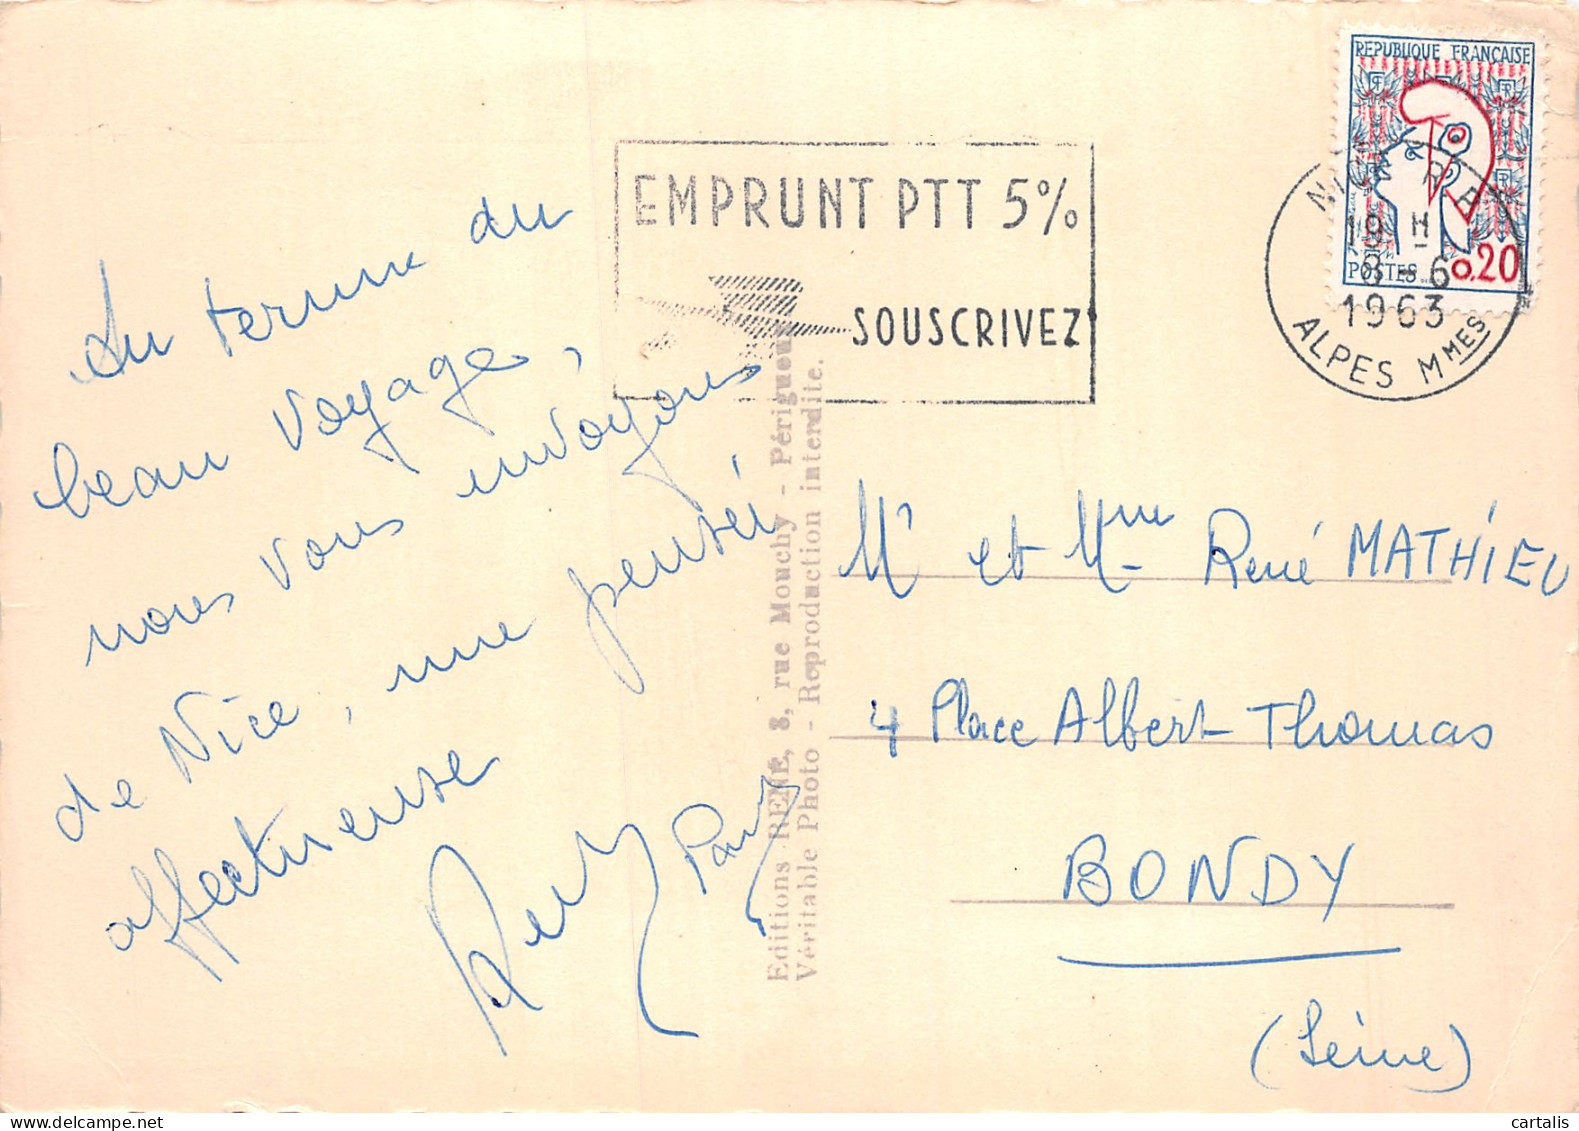 RÉPUBLIQUE FRANÇAISE
POSTES
0,20
19 H
8-6
1963
ALPES MMES
EMPRUNT PTT 5%
SOUSCRIVEZ
Au terme du
beau voyage,
nous vous envoyons
de Nice, une pensée
affectueuse
Editions RENÉ, 8, rue Mouchy - Périgueux
Véritable Photo - Reproduction interdite.
Mr et Mme René MATHIEU
4 Place Albert-Thomas
BONDY
(Seine)
cartalis